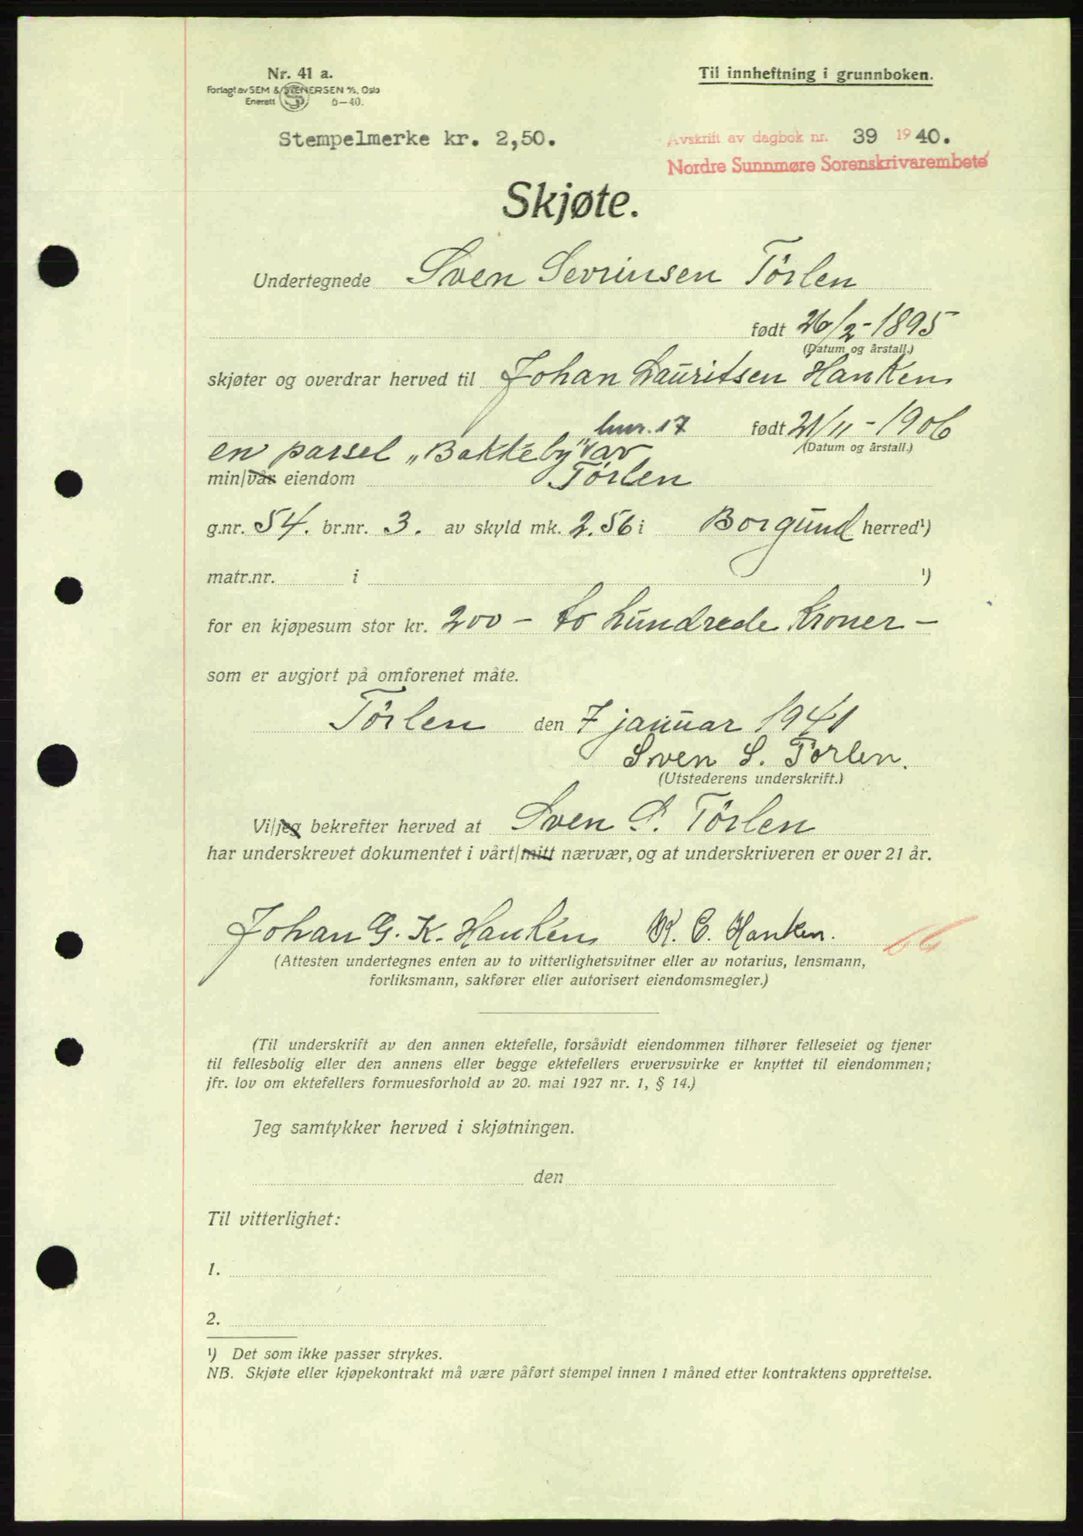 Nr. 41 a.
Forlagt av SEM & STENERSEN A/S, Oslo
Enerett 6-40.
Til innheftning i grunnboken.
Stempelmerke kr. 2,50.
Avskrift av dagbok nr. 39 1940.
Nordre Sunnmøre Sorenskrivarembete
Skjøte.
Undertegnede Sven Sevrinsen Tørlen
født 26/2-1895
(Datum og årstall.)
skjøter og overdrar herved til Johan Lauritsen Hanken
bnr. 17 født 21/11-1906
(Datum og årstall.)
en parsel „Bakkeby" av
min/vår eiendom Tørlen
g.nr. 54. br.nr. 3. av skyld mk. 2.56 i Borgund herred¹)
matr.nr. i ¹)
for en kjøpesum stor kr. 200 - to hundrede Kroner -
som er avgjort på omforenet måte.
Tørlen den 7 januar 1941
Sven S. Tørlen.
(Utstederens underskrift.)
Vi/jeg bekrefter herved at Sven S. Tørlen
har underskrevet dokumentet i vårt/mitt nærvær, og at underskriveren er over 21 år.
Johan G. K. Hanken K. C. Hanken.
66
(Attesten undertegnes enten av to vitterlighetsvitner eller av notarius, lensmann,
forliksmann, sakfører eller autorisert eiendomsmegler.)
(Til underskrift av den annen ektefelle, forsåvidt eiendommen tilhører felleseiet og tjener
til fellesbolig eller den annens eller begge ektefellers ervervsvirke er knyttet til eiendommen;
jfr. lov om ektefellers formuesforhold av 20. mai 1927 nr. 1, § 14.)
Jeg samtykker herved i skjøtningen.
den
Til vitterlighet:
1.
2.
¹) Det som ikke passer strykes.
NB. Skjøte eller kjøpekontrakt må være påført stempel innen 1 måned etter kontraktens opprettelse.